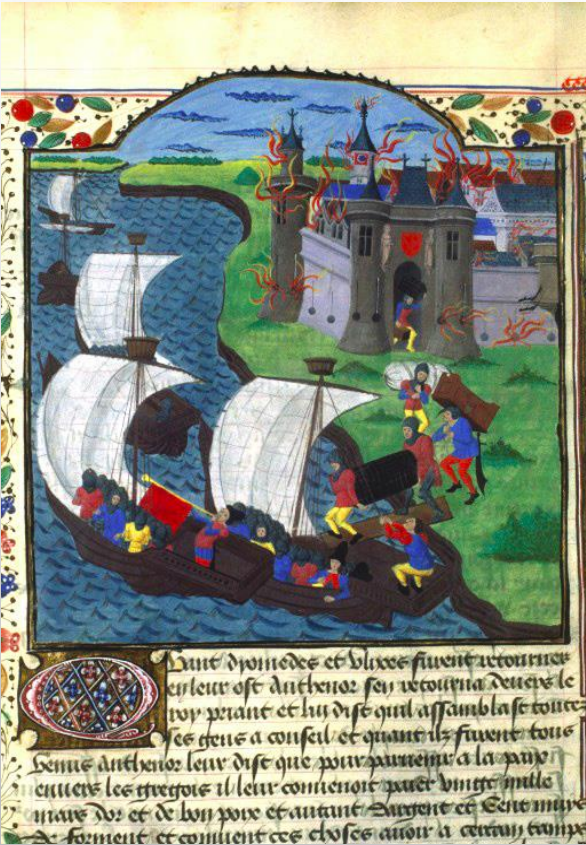 Quant dyomedes et vlixes furent retournez
en leur ost Anthenor sen retourna deuers le
roy priant et lui dist quil assamblast toutes
ses gens a conseil et quant ilz furent tous
venus Anthenor leur dist que pour paruenir a la paix
enuers les gregois il leur conuenoit paier vingt mille
mars dor et de bon poix et autant dargent et Cent muys
de forment et conuient ces choses auoir a certain temps